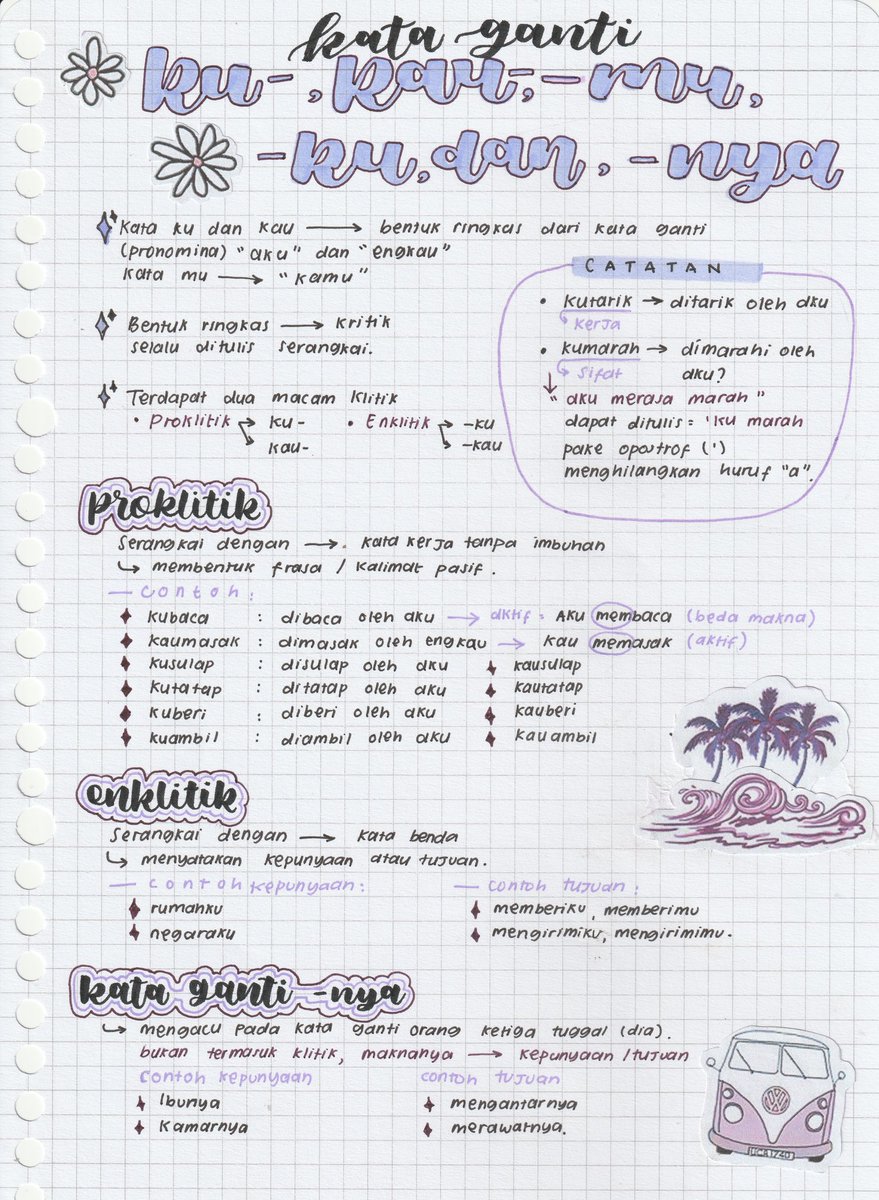 kata ganti
ku-, kau-, -mu,
-ku, dan, -nya
Kata ku dan kau → bentuk ringkas dari kata ganti
(pronomina) "aku" dan "engkau"
Kata mu → "kamu"
Bentuk ringkas → kritik
selalu ditulis serangkai.
Terdapat dua macam klitik
• Proklitik → ku- • Enklitik → -ku
→ kau- → -kau
CATATAN
• kutarik → ditarik oleh aku
kerja
• kumarah → dimarahi oleh
sifat aku?
"aku merasa marah"
dapat ditulis = 'ku marah
pake opostrof (')
menghilangkan huruf "a".
proklitik
Serangkai dengan → kata kerja tanpa imbuhan
↳ membentuk frasa / kalimat pasif.
— contoh:
kubaca : dibaca oleh aku → aktif : Aku membaca (beda makna)
kaumasak : dimasak oleh engkau → kau memasak (aktif)
kusulap : disulap oleh aku kausulap
kutatap : ditatap oleh aku kautatap
kuberi : diberi oleh aku kauberi
kuambil : diambil oleh aku kauambil
enklitik
Serangkai dengan → kata benda
↳ menyatakan kepunyaan atau tujuan.
— contoh kepunyaan: — contoh tujuan:
rumahku memberiku, memberimu
negaraku mengirimiku, mengirimimu.
kata ganti -nya
↳ mengacu pada kata ganti orang ketiga tuggal (dia).
bukan termasuk klitik, maknanya → kepunyaan/tujuan
contoh kepunyaan contoh tujuan
Ibunya mengantarnya
Kamarnya merawatnya.